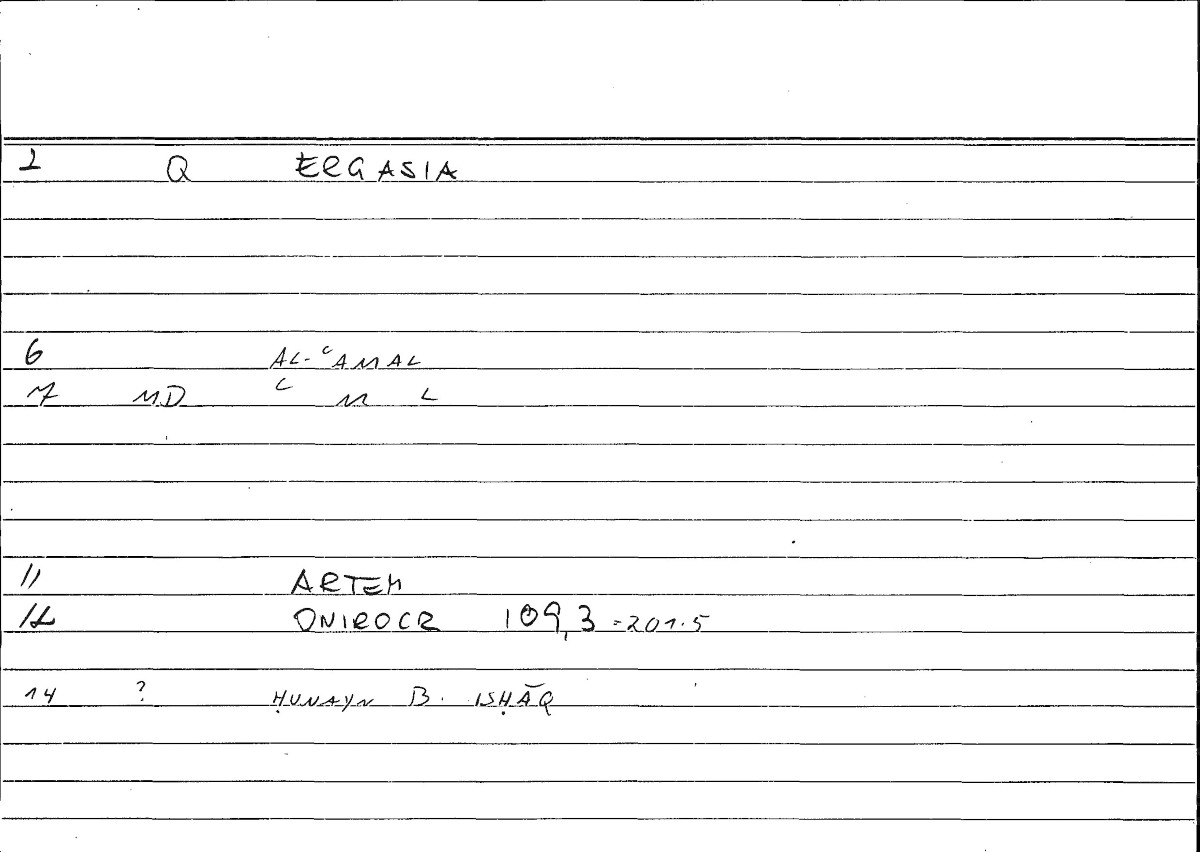 1 Q ERGASIA
6 AL-ʿAMAL
7 MD ʿ M L
11 ARTEM
12 ONIROCR 109,3 =201.5
14 ? ḤUNAYN B. ISḤĀQ